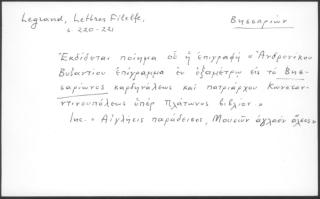 Legrand, Lettres Filelfe,
Βησσαρίων
σ. 220-221
Ἐκδίδεται ποίημα οὗ ἡ ἐπιγραφή «Ἀνδρονίκου
Βυζαντίου ἐπίγραμμα ἐν ἑξαμέτρῳ εἰς τὸ Βησ-
σαρίωνος καρδηνάλεως καὶ πατριάρχου Κωνσταν-
τινουπόλεως ὑπὲρ Πλάτωνος βιβλίον.»
Inc. «Αἰγλήεις παράδεισος, Μουσῶν ἀγλαὸν ἄλσος»